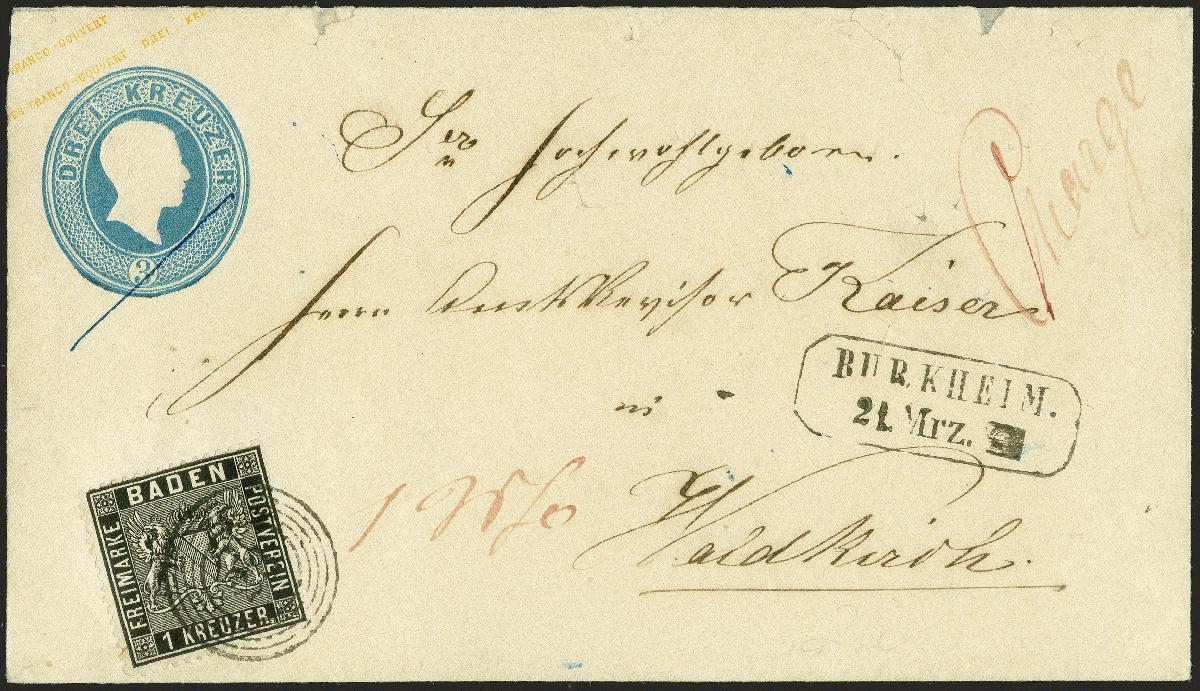 FRANCO-COUVERT
ES FRANCO-COUVERT DREI KRE
DREI KREUZER
3
Charge
Sr Hochwohlgeboren.
Herrn Amts Revisor Kaiser
in
Waldkirch.
BURKHEIM.
21. Mrz.
BADEN
FREIMARKE
POSTVEREIN
1 KREUZER.